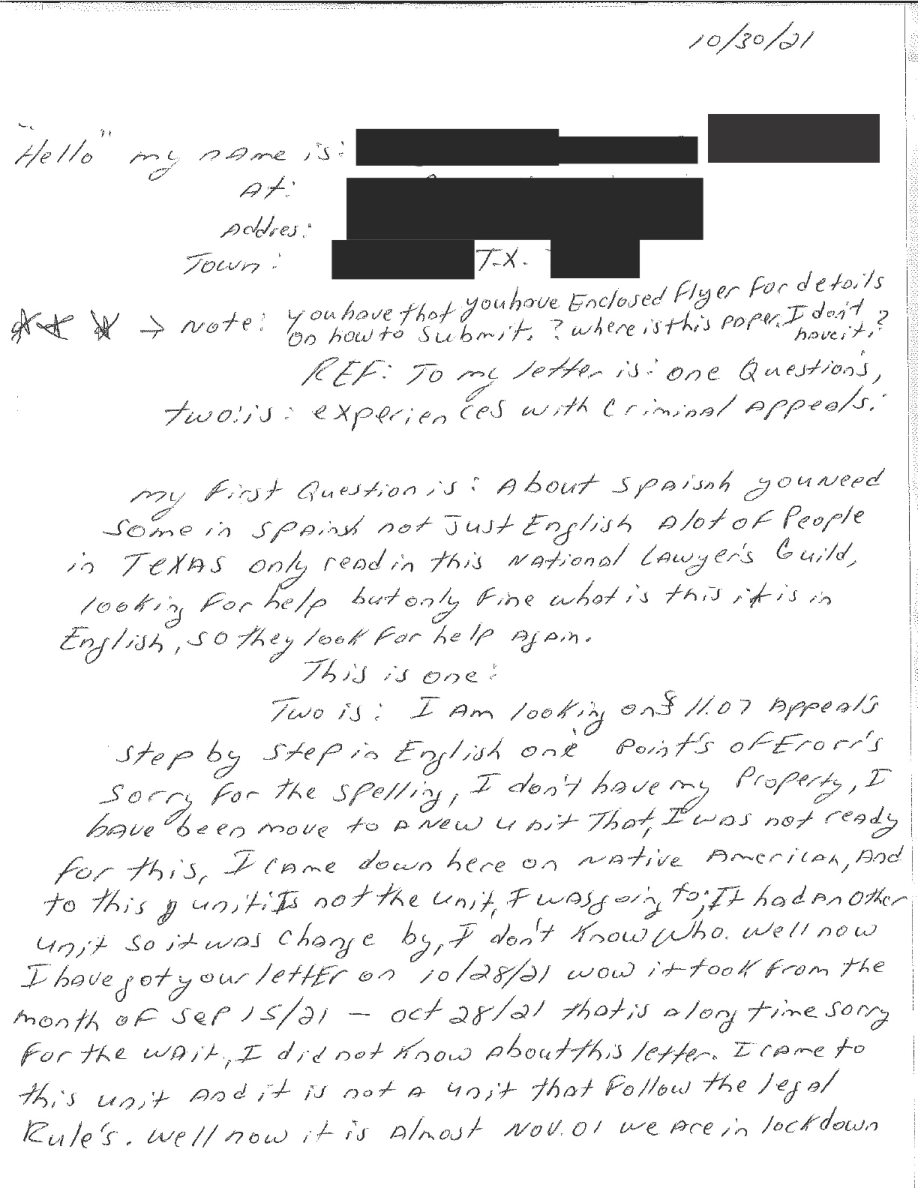 10/30/21
"Hello" my name is:
At:
Addres:
Town: T.X.
→ Note: you have that you have Enclosed Flyer For details
on how to Submit. ? where is this paper. I don't
have it. ?
REF: To my letter is: one Question's,
two: is: experiences with Criminal Appeals.
my First Question is: About spaisnh you Need
some in spainsh not Just English Alot of People
in TEXAS only read in this National Lawyer's Guild,
looking For help but only Fine what is this it is in
English, so they look For help Again.
This is one:
Two is: I Am looking on § 11.07 Appeal's
step by step in English one Point's of Erorr's
Sorry For the spelling, I don't have my Property, I
have been move to A New unit That, I was not ready
for this, I came down here on Native American, And
to this unit: Is not the unit, I was going to; It had An other
unit so it was change by, I don't know who. Well now
I have got your lettEr on 10/28/21 wow it took From the
month of Sep 15/21 – oct 28/21 that is a long time sorry
For the wait, I did not know About this letter. I came to
this unit And it is not a unit that Follow the legal
Rule's. Well now it is Almost Nov. 01 we Are in lockdown